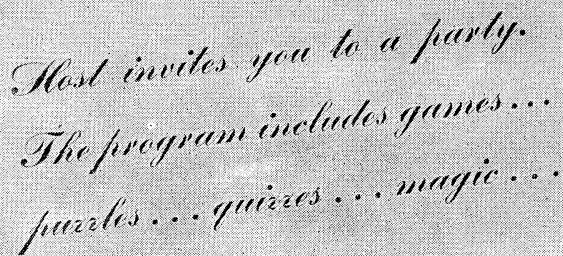 Host invites you to a party.
The program includes games...
puzzles... quizzes... magic...